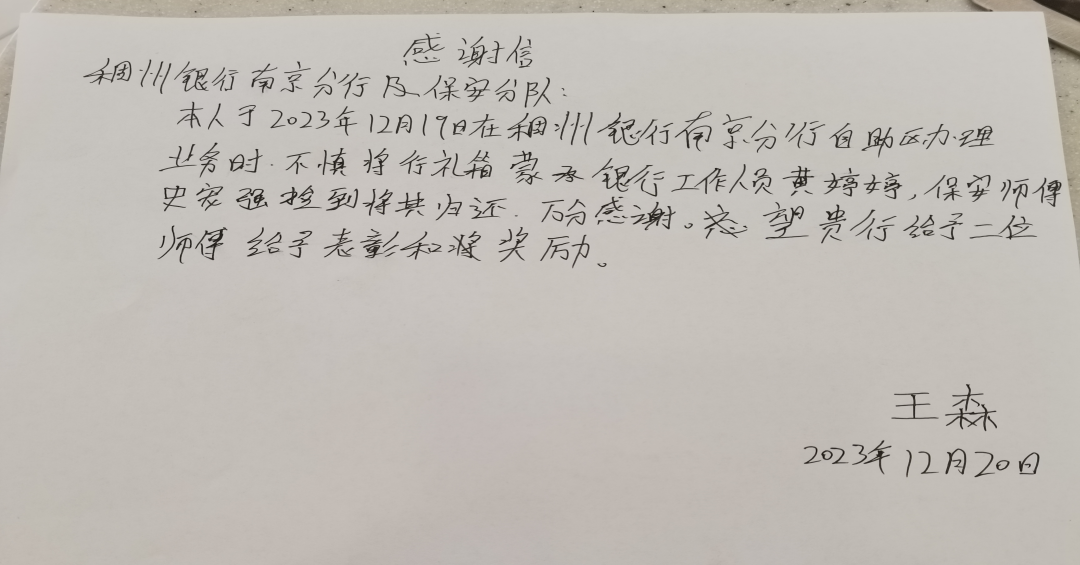 感谢信
稠州银行南京分行及保安分队:
本人于2023年12月19日在稠州银行南京分行自助区办理
业务时.不慎将行礼箱蒙承银行工作人员黄婷婷,保安师傅
史宏强捡到将其归还.万分感谢。忐望贵行给予二位
师傅给予表彰和将奖励。
王森
2023年12月20日